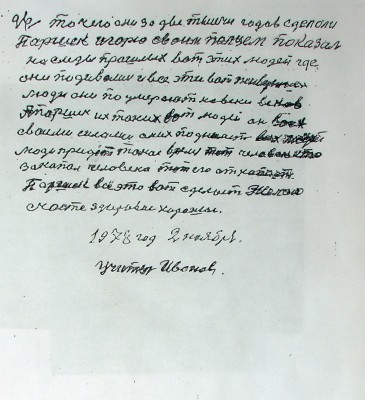 то чего они за две тысячи годов сделали
Паршек и горю своим пальцем показал
на следы прошедших вот этих людей где
они подевались и все эти вот живущие
люди они поумерают на веки веков
А Паршек их таких вот людей он
своими силами он их поднимет
люди придет такое время тот человек кто
закапал человека тот его откапает
Паршек всё это вот сделает Желаю
счастье здоровье хорошее.
1978 год 2 ноября.
Учитель Иванов.